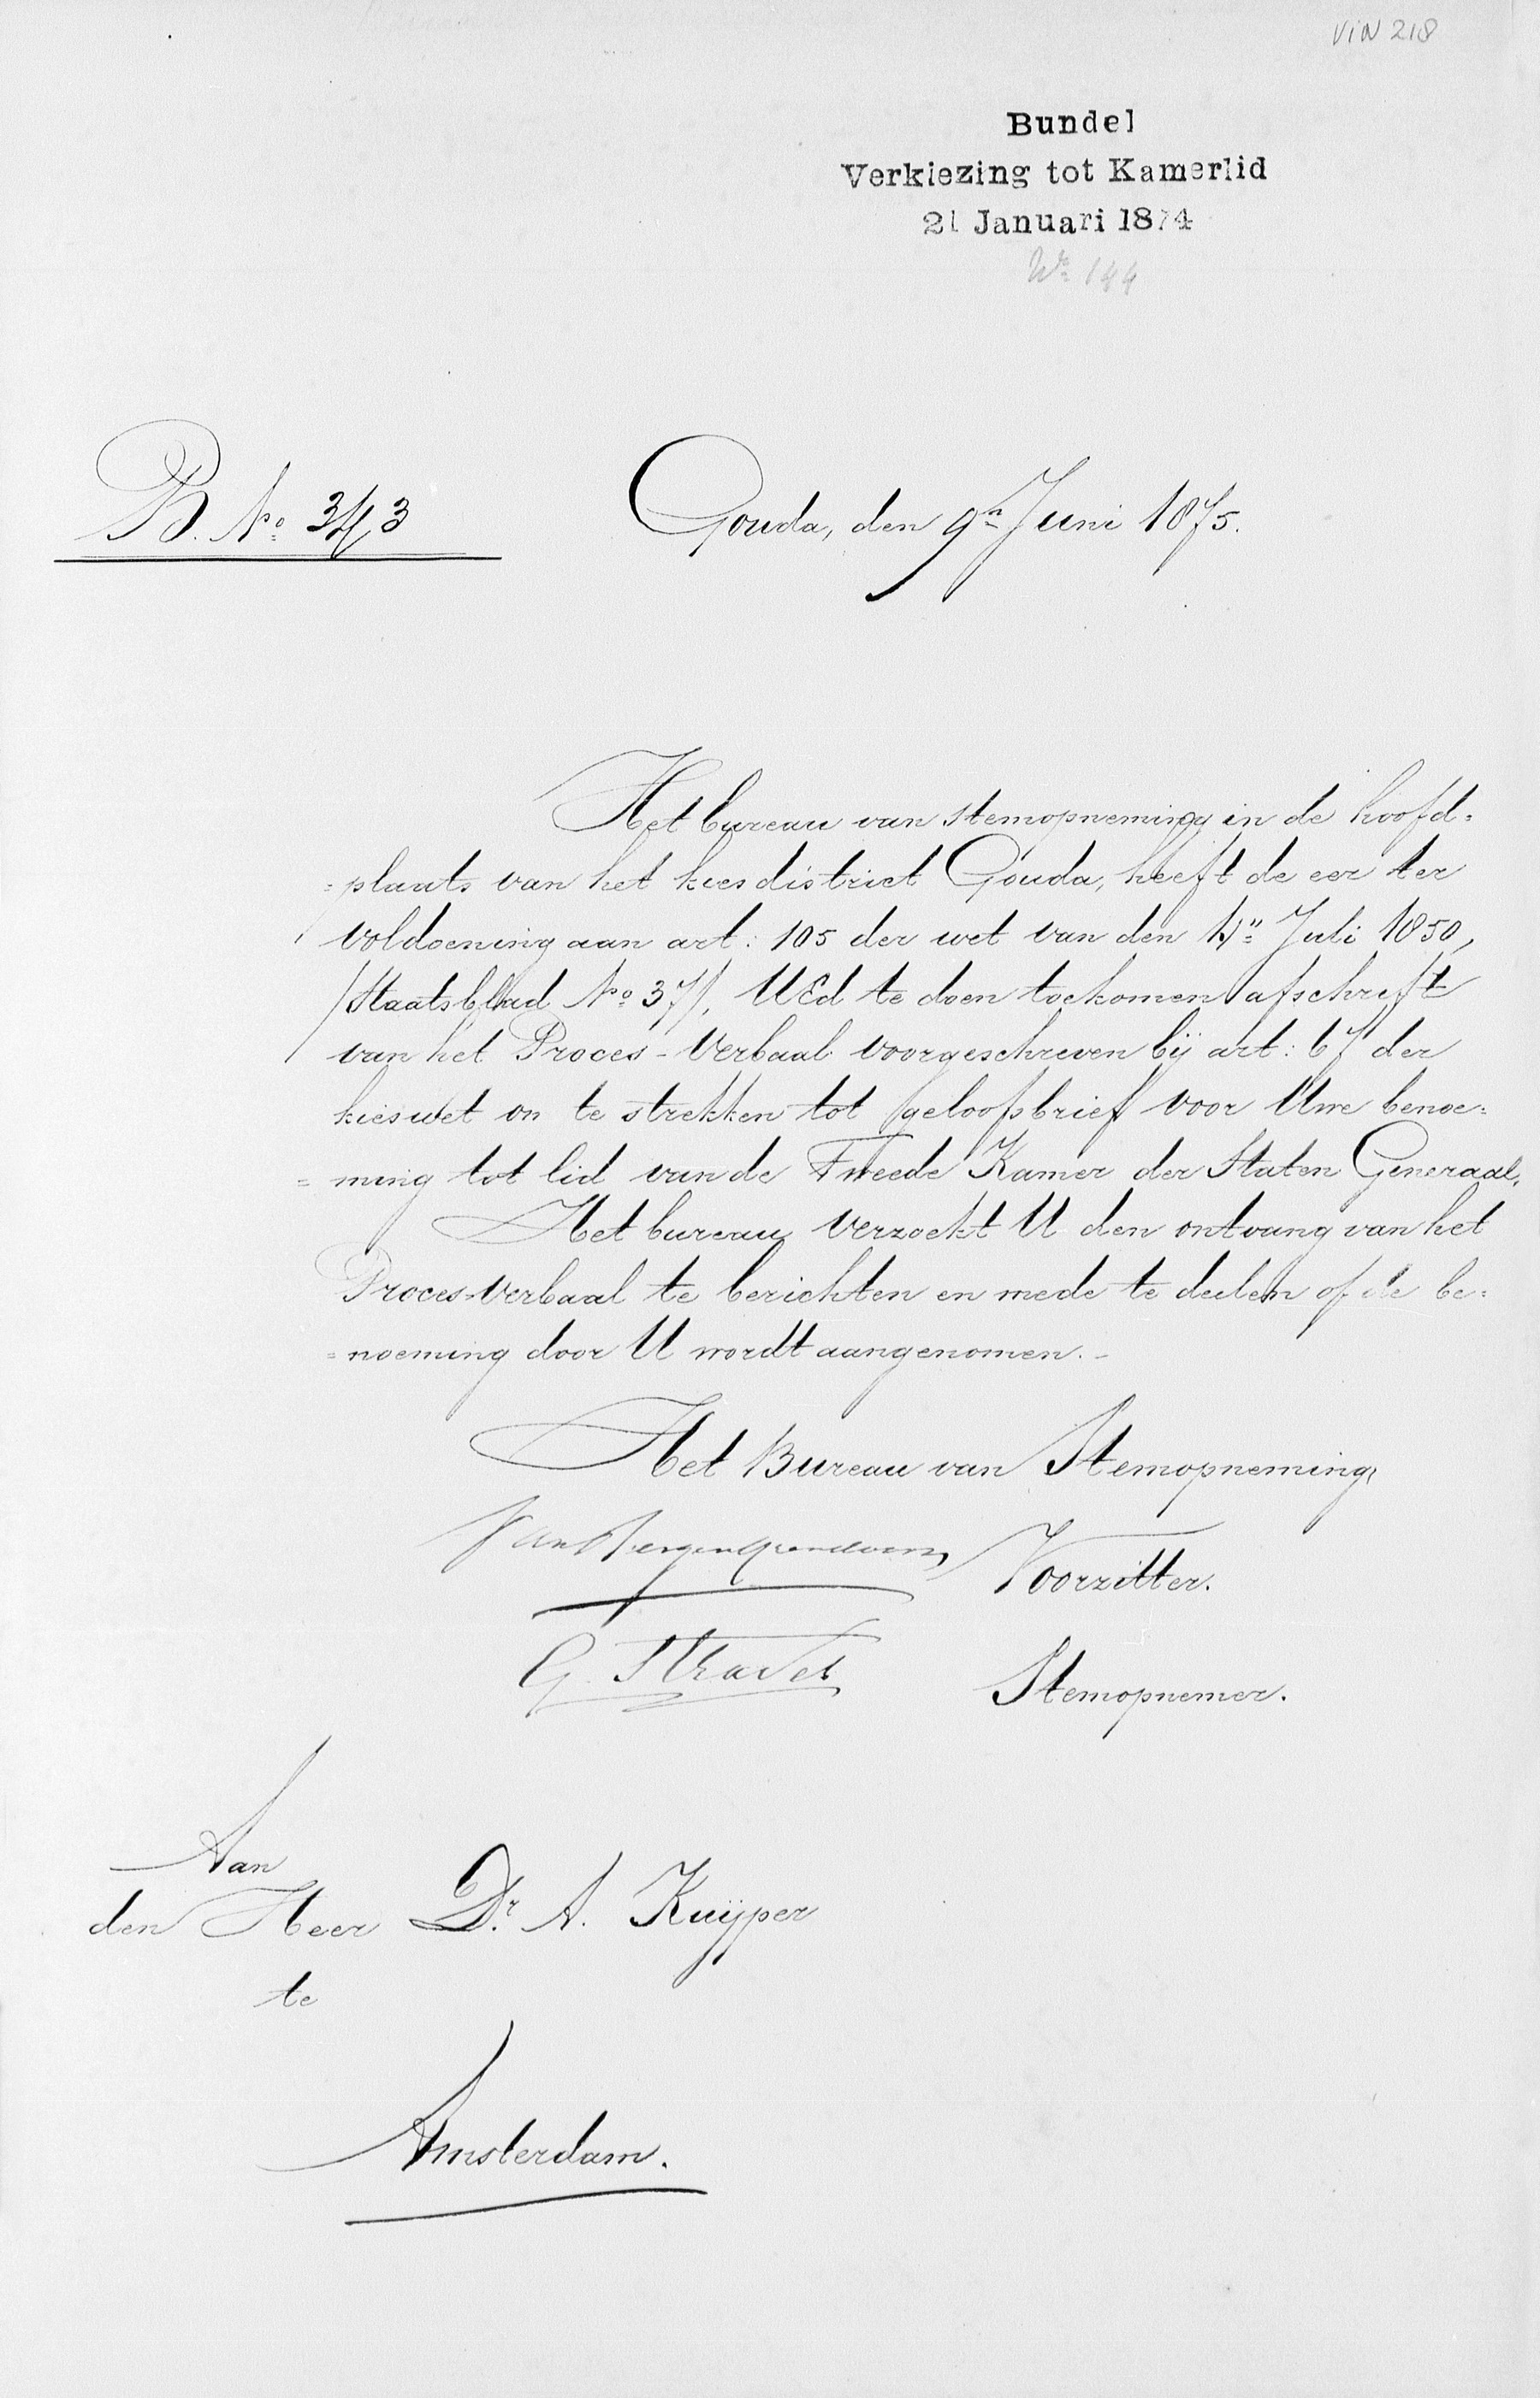 VIN 218
Bundel
Verkiezing tot Kamerlid
21 Januari 1874
No 144
B. No 343
Gouda, den 9n Juni 1875.
Het bureau van stemopneming in de hoofd=
=plaats van het kiesdistrict Gouda, heeft de eer ter
voldoening aan art: 105 der wet van den 4n Juli 1850,
/Staatsblad No 37/, UEd te doen toekomen afschrift
van het Proces-Verbaal voorgeschreven bij art: 67 der
kieswet om te strekken tot geloofsbrief voor Uwe benoe=
=ming tot lid van de Tweede Kamer der Staten Generaal.
Het bureau verzoekt U den ontvang van het
Proces=verbaal te berichten en mede te deelen of de be=
=noeming door U wordt aangenomen.-
Het Bureau van Stemopneming,
VanBergenIJzendoorn Voorzitter.
G. Straver Stemopnemer.
Aan
den Heer Dr. A. Kuijper
te
Amsterdam.